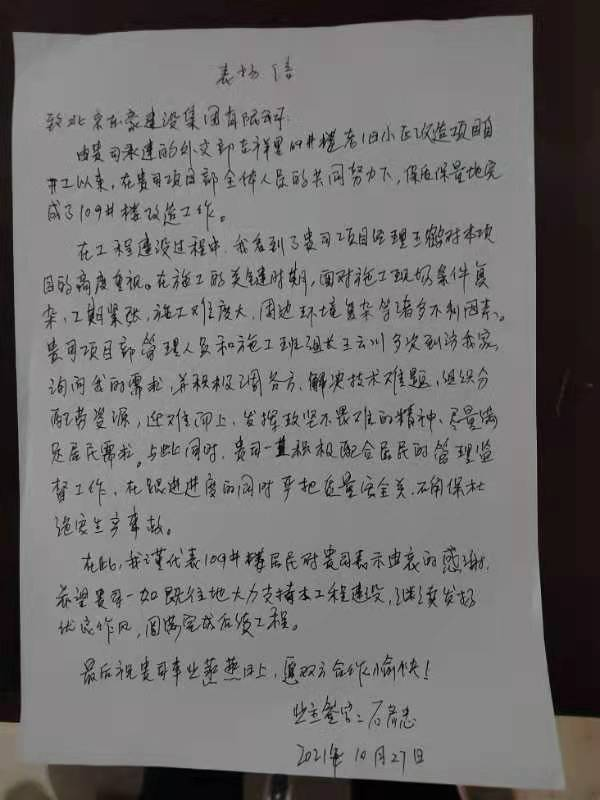 表扬信
致北京东豪建设集团有限公司:
由贵司承建的外交部东祥里109#楼老旧小区改造项目自
#工以来,在贵司项目部全体人员的共同努力下,保质保量地完
成了109#楼改造工作。
在工程建设过程中,我看到了贵司项目经理王鹤对本项
目的高度重视。在施工的关键时期,面对施工现场条件复
杂,工期紧张,施工难度大,周边环境复杂等诸多不利因素。
贵司项目部管理人员和施工班组长王云川多次到访我家,
询问我的需求,并积极调各方,解决技术难题,组织分
配劳资源,迎难而上,发挥攻坚不畏难的精神、尽量满
足居民需求。与此同时,贵司一直积极配合居民的管理监
督工作,在跟进进度的同时严把质量安全关,确保杜
绝安生产事故。
在此,我谨代表109#楼居民对贵司表示由衷的感谢,
希望贵司一如既往地大力支持本工程建设,继续发扬
优良作风,圆满完成后续工程。
最后祝贵司事业蒸蒸日上,愿双方合作愉快!
业主签字:石
2021年10月27日